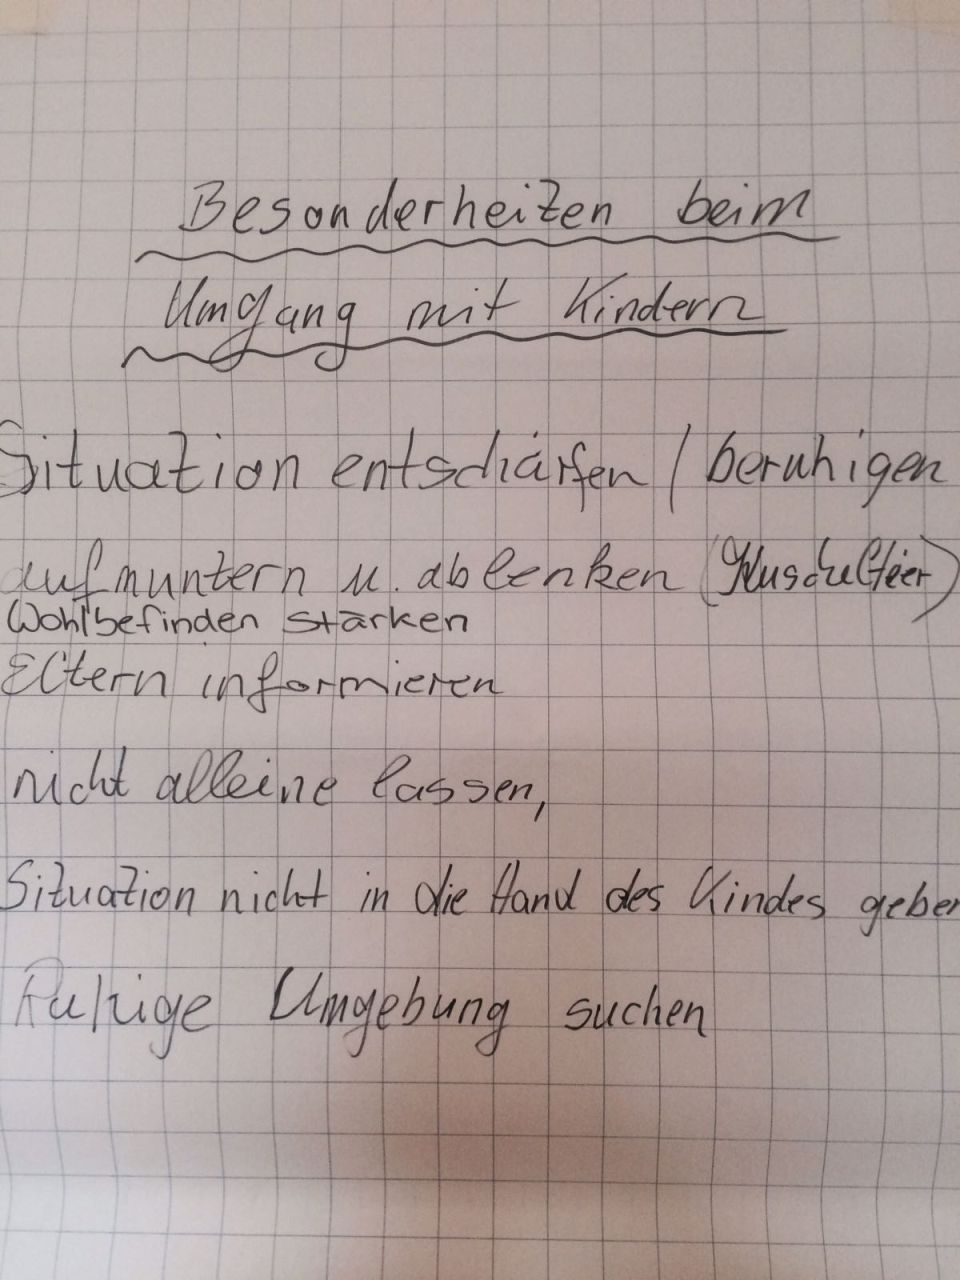 Besonderheiten beim
Umgang mit Kindern
Situation entschärfen / beruhigen
aufmuntern u. ablenken (Kuscheltier)
Wohlbefinden stärken
Eltern informieren
nicht alleine lassen,
Situation nicht in die Hand des Kindes geben
Ruhige Umgebung suchen